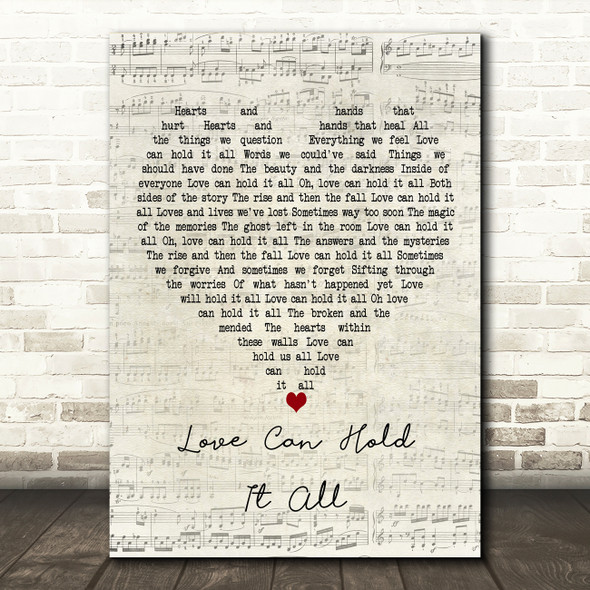 Hearts and hands that
hurt Hearts and hands that heal All
the things we question Everything we feel Love
can hold it all Words we could've said Things we
should have done The beauty and the darkness Inside of
everyone Love can hold it all Oh, love can hold it all Both
sides of the story The rise and then the fall Love can hold it
all Loves and lives we've lost Sometimes way too soon The magic
of the memories The ghost left in the room Love can hold it
all Oh, love can hold it all The answers and the mysteries
The rise and then the fall Love can hold it all Sometimes
we forgive And sometimes we forget Sifting through
the worries Of what hasn't happened yet Love
will hold it all Love can hold it all Oh love
can hold it all The broken and the
mended The hearts within
these walls Love can
hold us all Love
can hold
it all
Love Can Hold
It All